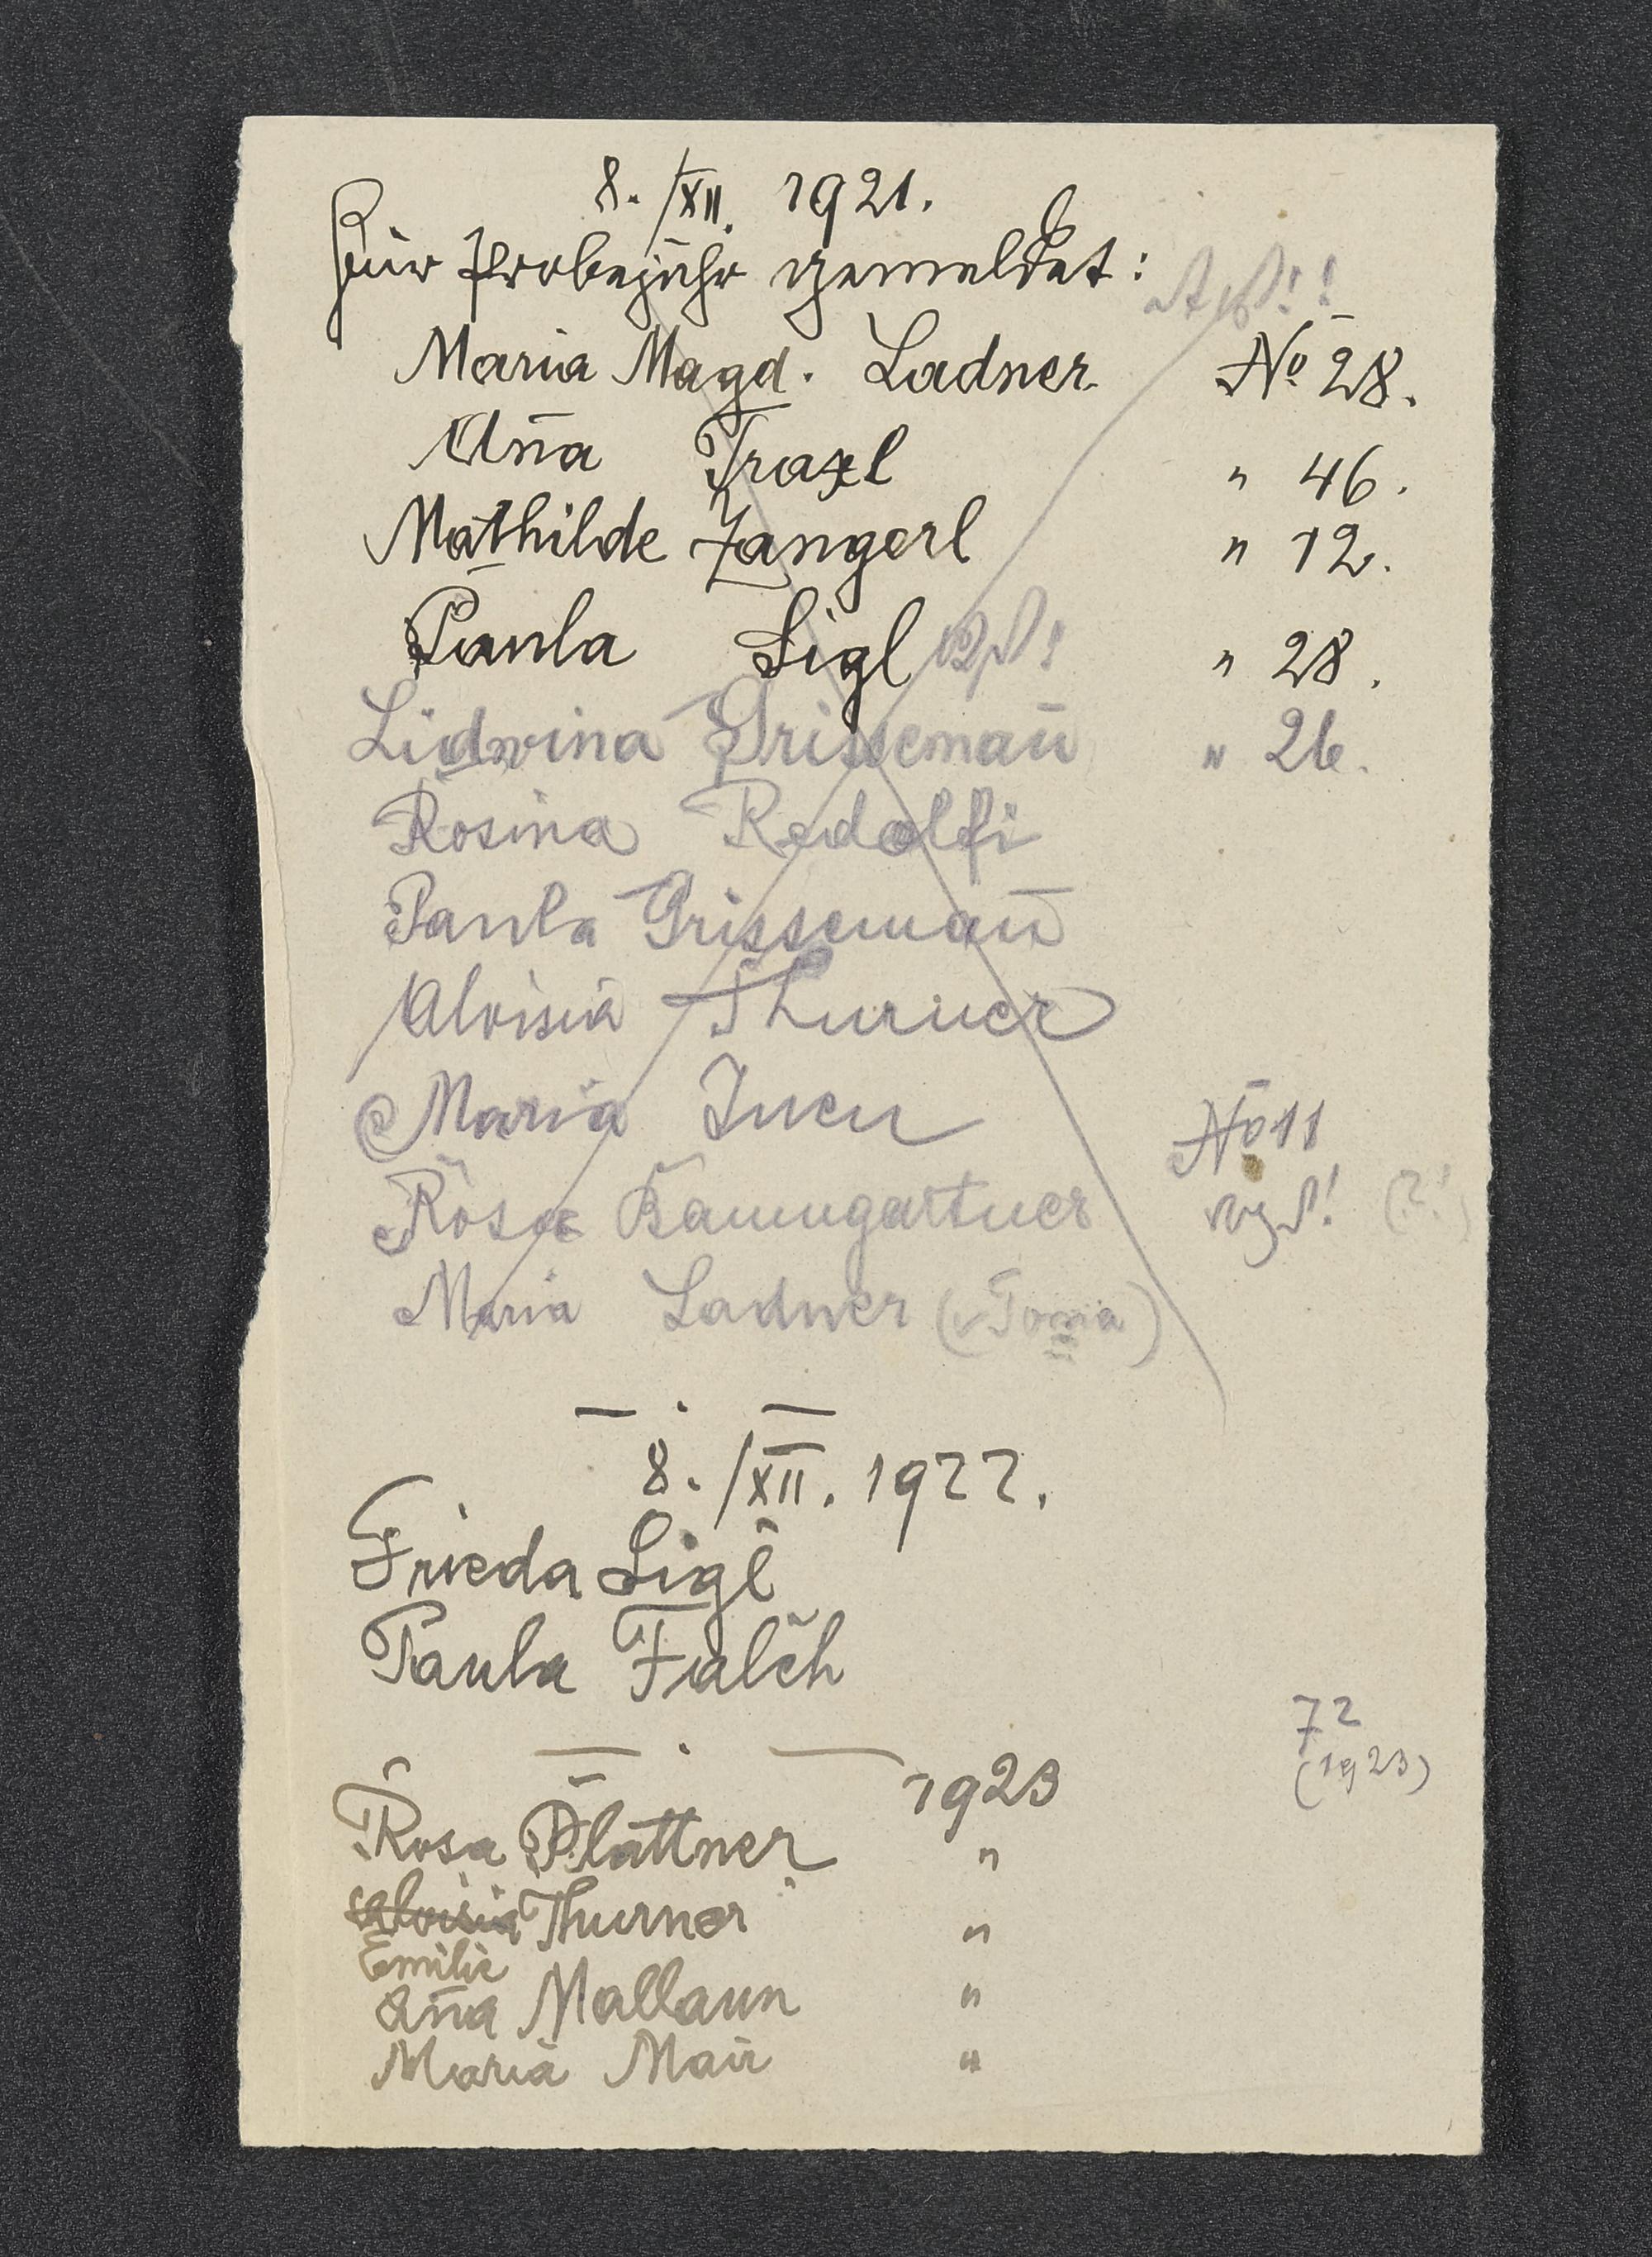 8./XII. 1921.
Für Probejahr gemeldet:
Maria Magd. Ladner No 28.
Anña Traxl " 46.
Mathilde Zangerl " 12.
Paula Sigl " 28.
Lidwina Grissemañ " 26.
Rosina Redolfi
Paula Grissemañ
Aloisia Thurner
Maria Juen No 11
Rosa Baumgartner
Maria Ladner
8./XII. 1922.
Frieda Sigl
Paula Falch
72
(1923)
1923
Rosa Plattner "
Aloisia Thurner "
Emilie
Aña Mallaun "
Maria Mair "